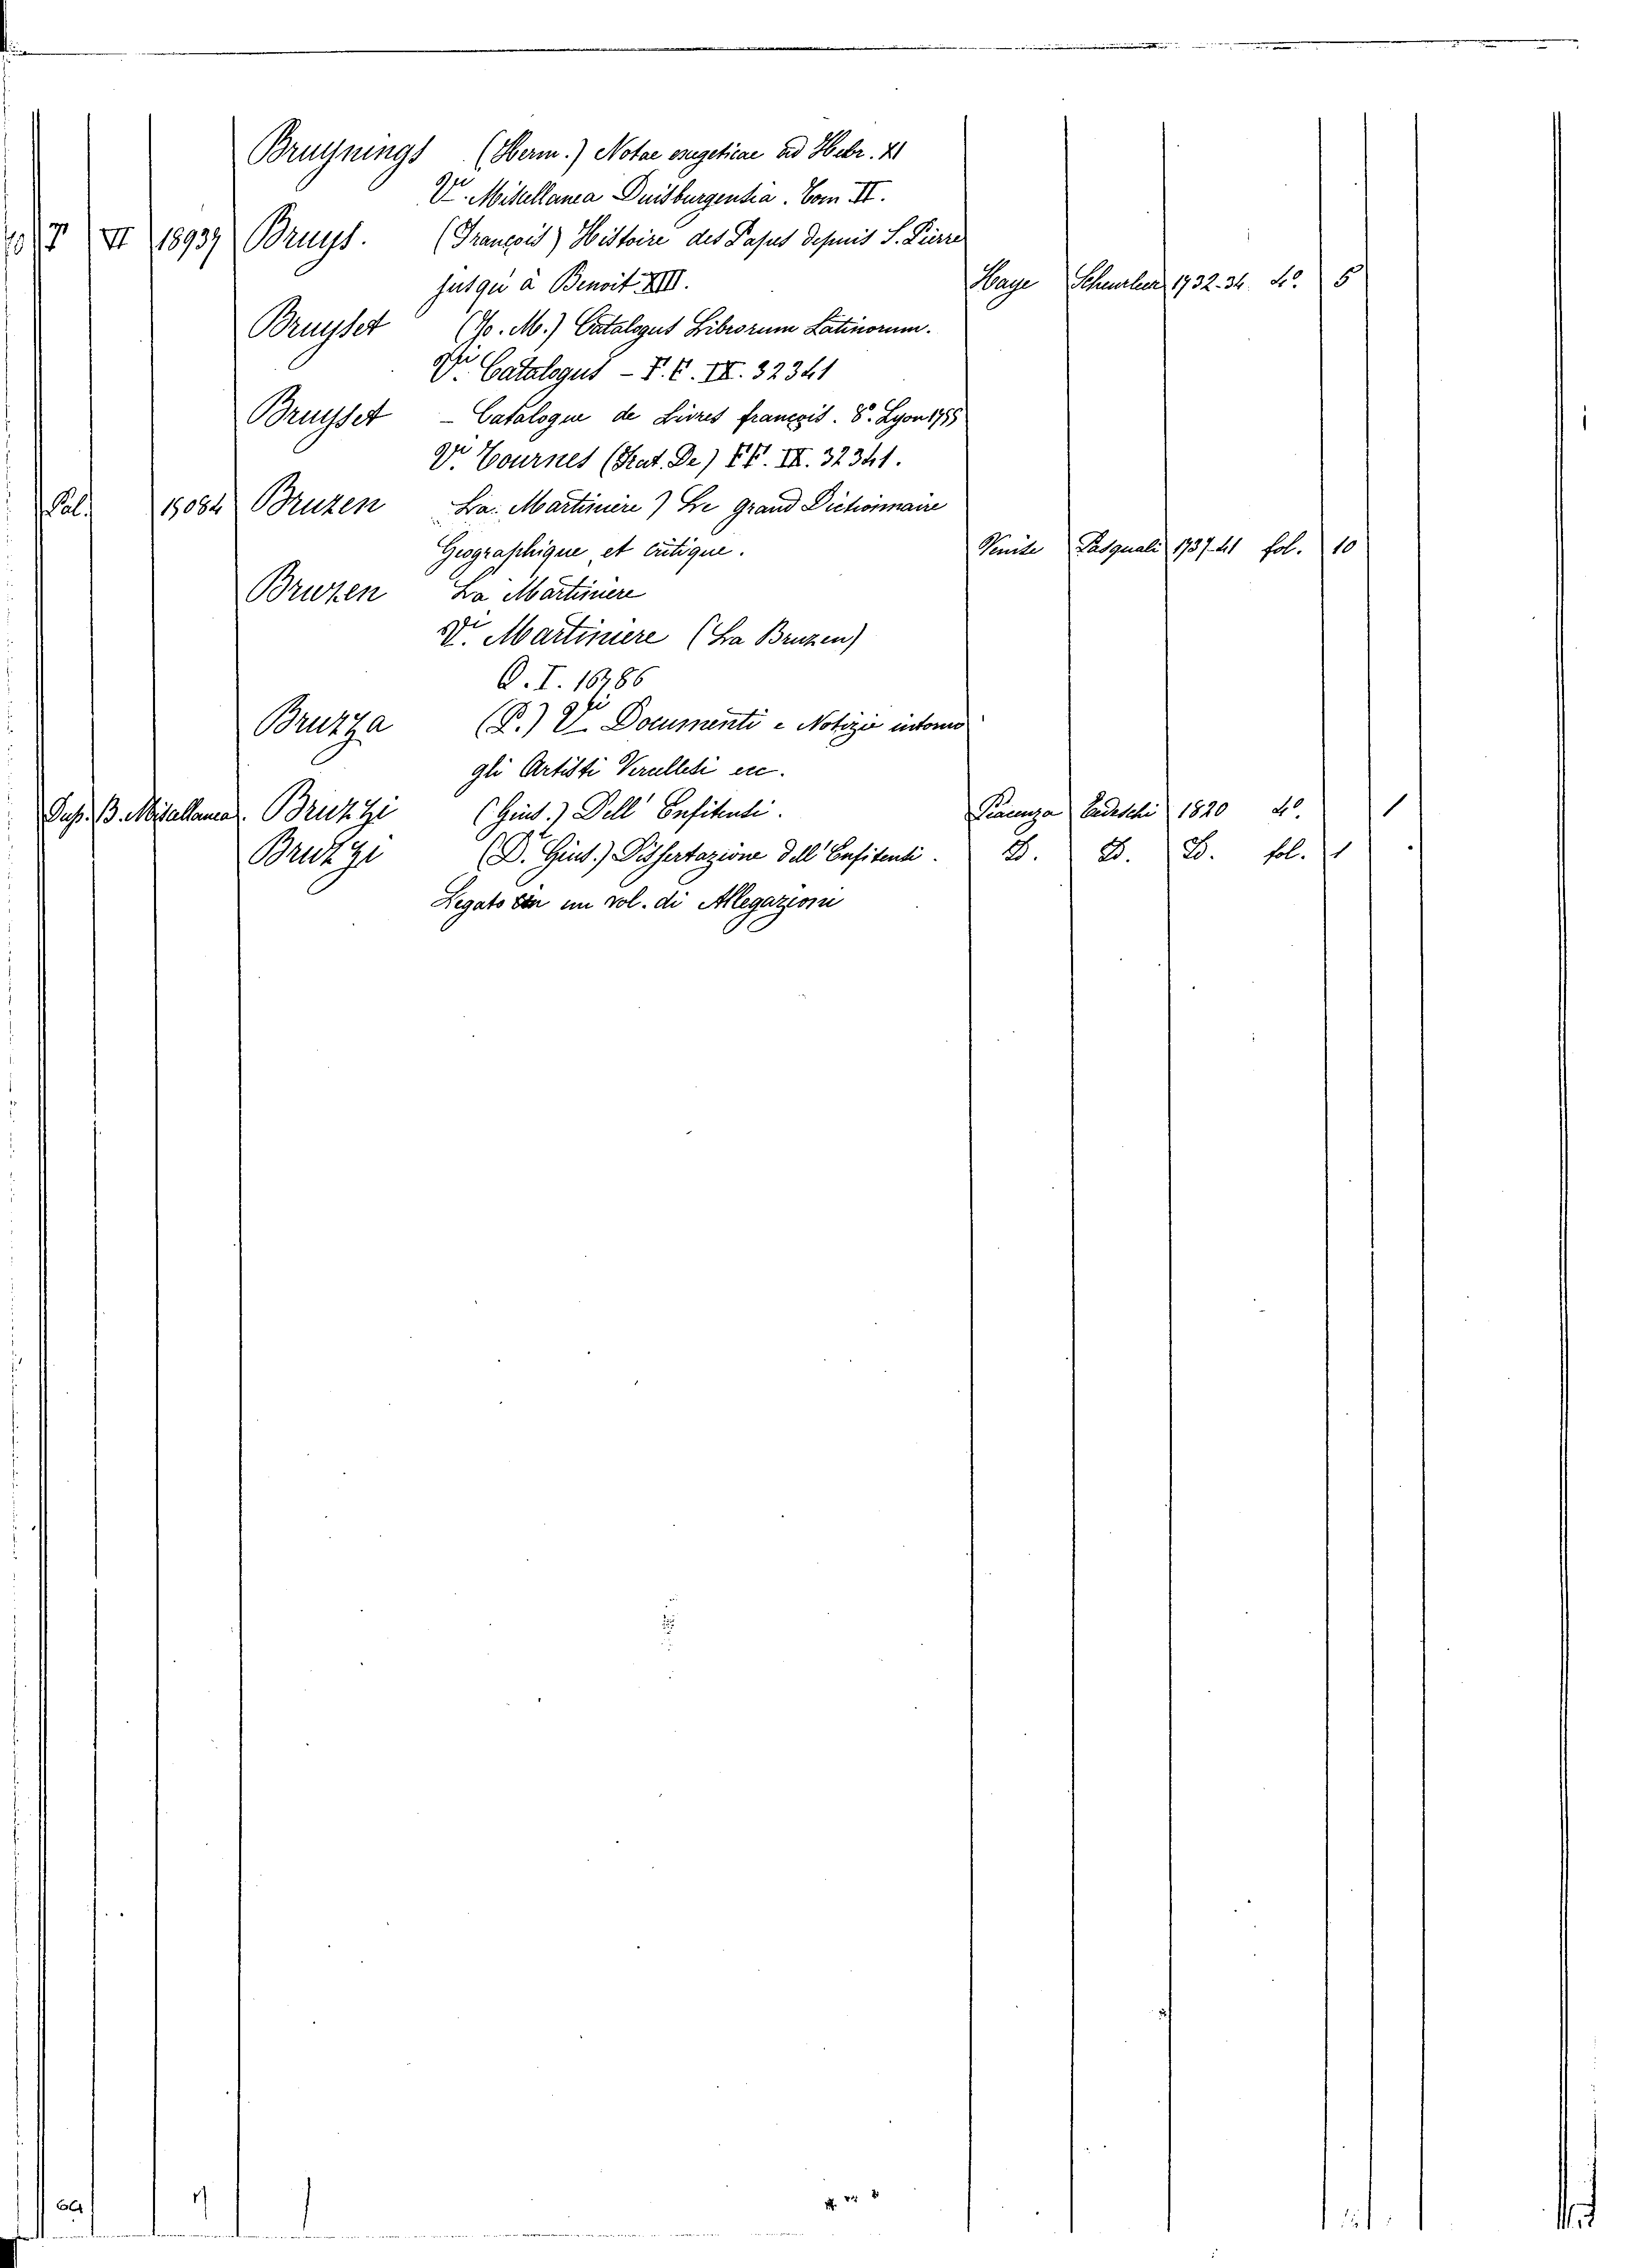 Bruynings (Herm.) Notae exegeticae ad Hebr. XI
V.di Miscellanea Duisburgensia. Tom II.
T VII 18937 Bruys. (François) Histoire des Papes depuis S. Pierre
jusqu'à Benoit XIII. Haye Scheurleer 1732-34. 4º. 5
Bruyset (Jo. M.) Catalogus Librorum Latinorum.
V.di Catalogus - F. F. IX. 32341
Bruysset - Catalogue de Livres françois. 8º. Lyon 1755
V.di Tournes (Frat. De) F.F. IX. 32341.
Pal. 15084 Bruzen La Martiniere) Le grand Dictionnaire
Geographique, et critique. Venise Pasquali 1737-41 fol. 10
Bruzen La Martiniere
V.di Martiniere (La Bruzen)
Q. I. 16786
Bruzza (P.) V.di Documenti e Notizie intorno
gli Artisti Vercellesi ecc.
Sup. B. Miscellanea. Bruzzi (Gius.) Dell' Enfiteusi. Piacenza Tedeschi 1820 4º. 1
Bruzzi (D.r Gius.) Dissertazione dell' Enfiteusi. D. D. D. fol. 1
Legato in un vol. di Allegazioni